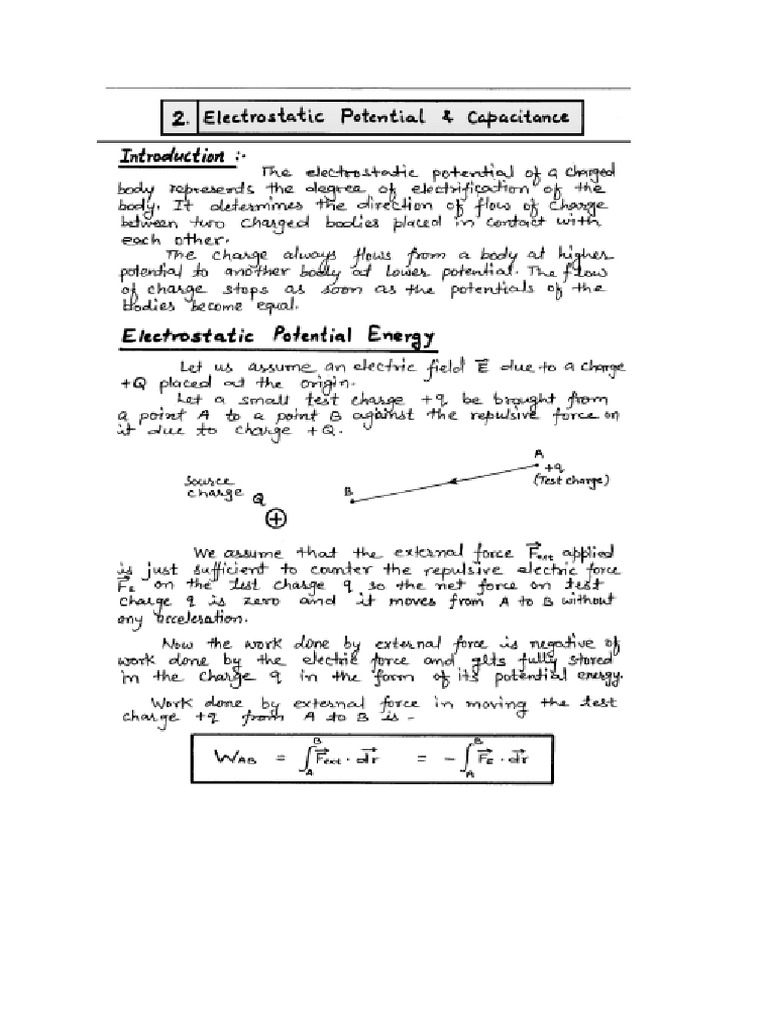 2. Electrostatic Potential & Capacitance
Introduction :-
The electrostatic potential of a charged
body represends the degree of electrification of the
body. It determines the direction of flow of Charge
between two charged bodies placed in contact with
each other.
The charge always flows from a body at higher
potential to another body at lower potential. The flow
of charge stops as soon as the potentials of the
bodies become equal.
Electrostatic Potential Energy
Let us assume an electric field E⃗ due to a charge
+Q placed at the origin.
Let a small test charge +q be brought from
a point A to a point B against the repulsive force on
it due to charge +Q.
A
+q
(Test charge)
B
Source
charge Q
+
We assume that the external force F⃗ext applied
is just sufficient to counter the repulsive electric force
F⃗E on the test charge q so the net force on test
charge q is zero and it moves from A to B without
any acceleration.
Now the work done by external force is negative of
work done by the electric force and gets fully stored
in the charge q in the form of its potential energy.
Work done by external force in moving the test
charge +q from A to B is -
WAB = ∫_A^B F⃗ext · dr⃗ = - ∫_A^B F⃗E · dr⃗